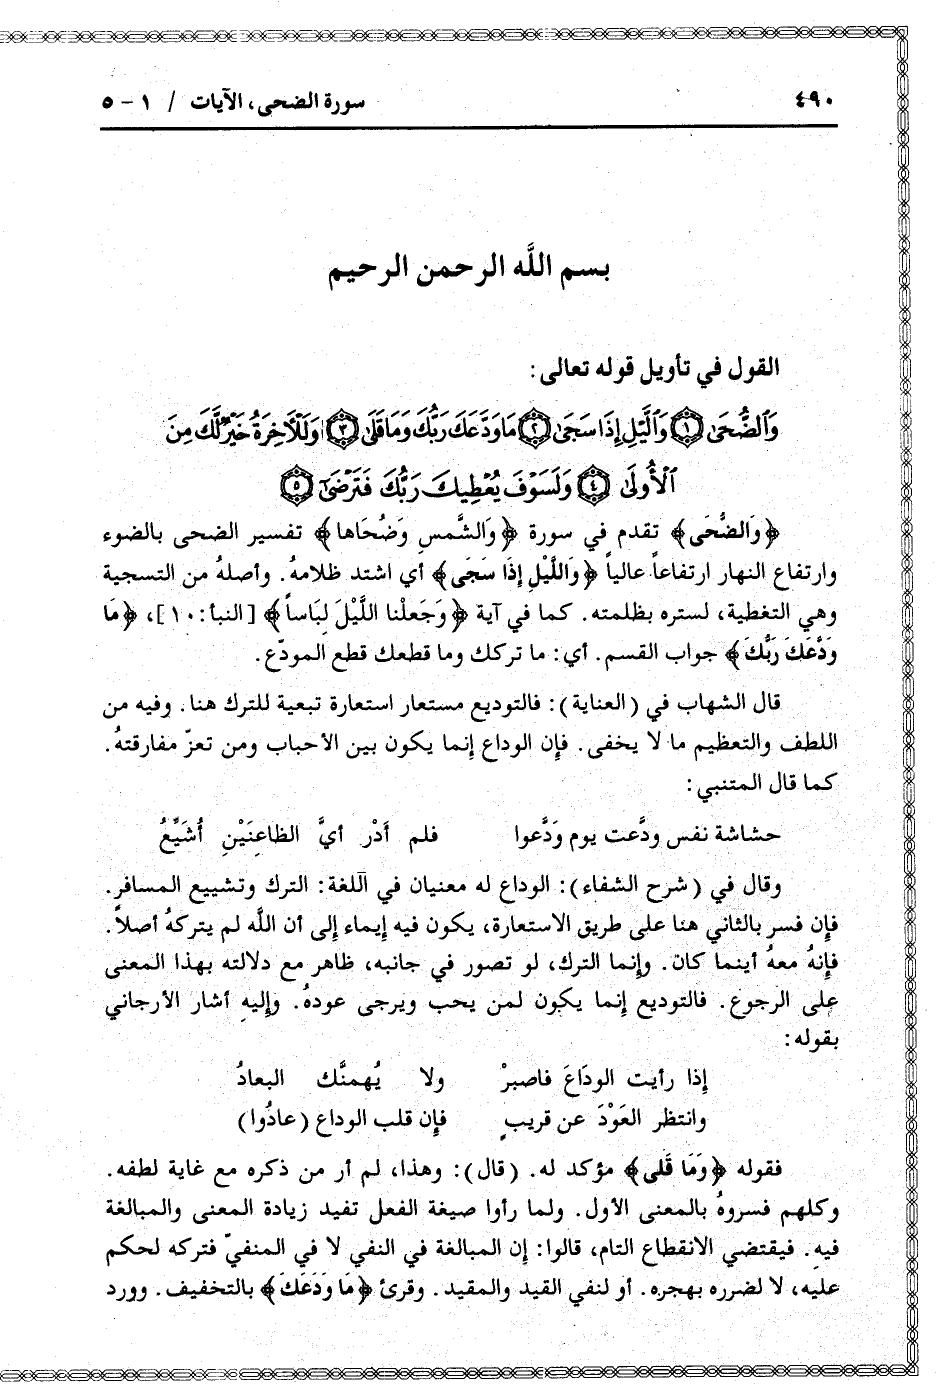 ٤٩٠ سورة الضحى، الآيات / ١ - ٥
بسم اللَّه الرحمن الرحيم
القول في تأويل قوله تعالى:
وَٱلضُّحَىٰ ١ وَٱلَّيْلِ إِذَا سَجَىٰ ٢ مَا وَدَّعَكَ رَبُّكَ وَمَا قَلَىٰ ٣ وَلَلْآخِرَةُ خَيْرٌ لَّكَ مِنَ
ٱلْأُولَىٰ ٤ وَلَسَوْفَ يُعْطِيكَ رَبُّكَ فَتَرْضَىٰٓ ٥
﴿وَالضُّحَى﴾ تقدم في سورة ﴿وَالشَّمسِ وَضُحَاها﴾ تفسير الضحى بالضوء
وارتفاع النهار ارتفاعاً عالياً ﴿وَاللَّيْلِ إِذَا سَجَى﴾ أي اشتد ظلامهُ. وأصلهُ من التسجية
وهي التغطية، لستره بظلمته. كما في آية ﴿وَجَعلْنا اللَّيْلَ لِبَاساً﴾ [النبأ:١٠]، ﴿مَا
وَدَّعَكَ رَبُّكَ﴾ جواب القسم. أي: ما تركك وما قطعك قطع المودّع.
قال الشهاب في (العناية): فالتوديع مستعار استعارة تبعية للترك هنا. وفيه من
اللطف والتعظيم ما لا يخفى. فإن الوداع إنما يكون بين الأحباب ومن تعزّ مفارقتهُ.
كما قال المتنبي:
حشاشة نفس ودَّعت يوم وَدَّعوا فلم أَدْرِ أيَّ الظاعِنَيْنِ أُشَيِّعُ
وقال في (شرح الشفاء): الوداع له معنيان في اللغة: الترك وتشييع المسافر.
فإن فسر بالثاني هنا على طريق الاستعارة، يكون فيه إيماء إلى أن اللَّه لم يتركهُ أصلاً.
فإنهُ معهُ أينما كان. وإنما الترك، لو تصور في جانبه، ظاهر مع دلالته بهذا المعنى
على الرجوع. فالتوديع إنما يكون لمن يحب ويرجى عودهُ. وإليهِ أشار الأرجاني
بقوله:
إذا رأيت الودَاعَ فاصبرْ ولا يُهمنَّك البعادُ
وانتظر العَوْدَ عن قريبٍ فإن قلب الوداع (عادُوا)
فقوله ﴿وَمَا قَلى﴾ مؤكد له. (قال): وهذا، لم أر من ذكره مع غاية لطفه.
وكلهم فسروهُ بالمعنى الأول. ولما رأوا صيغة الفعل تفيد زيادة المعنى والمبالغة
فيهِ. فيقتضي الانقطاع التام، قالوا: إن المبالغة في النفي لا في المنفيّ فتركه لحكم
عليه، لا لضرره بهجره. أو لنفي القيد والمقيد. وقرئ ﴿مَا وَدَعَكَ﴾ بالتخفيف. وورد